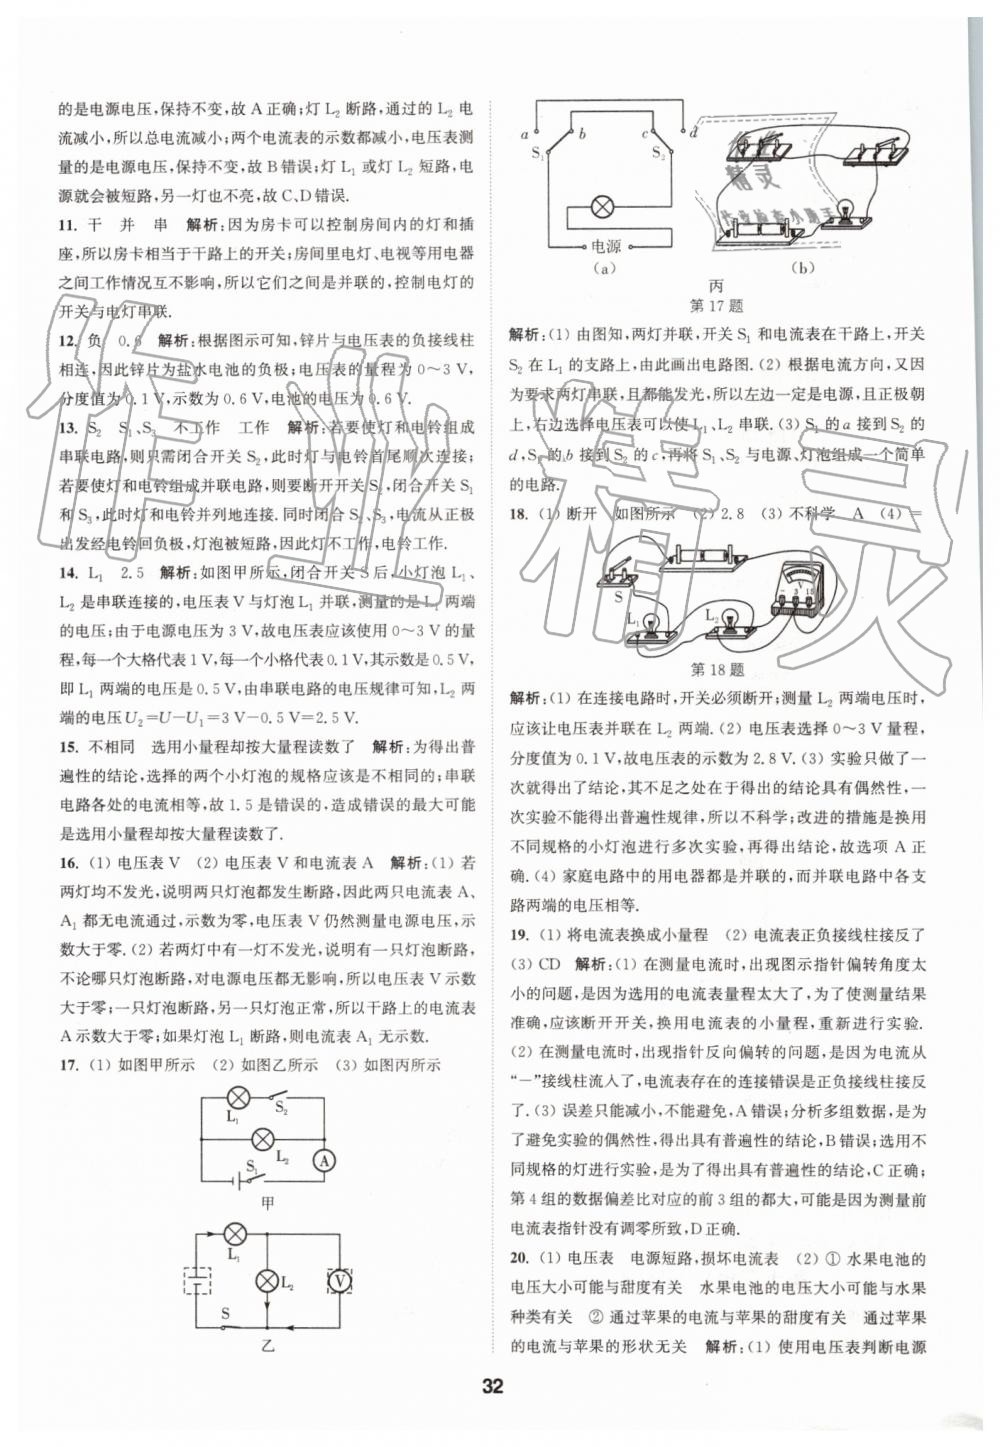 的是电源电压,保持不变,故 A 正确;灯 L₂ 断路,通过的 L₂ 电
流减小,所以总电流减小;两个电流表的示数都减小,电压表测
量的是电源电压,保持不变,故 B 错误;灯 L₁ 或灯 L₂ 短路,电
源就会被短路,另一灯也不亮,故 C、D 错误.
11. 干 并 串 解析:因为房卡可以控制房间内的灯和插
座,所以房卡相当于干路上的开关;房间里电灯、电视等用电器
之间工作情况互不影响,所以它们是并联的,控制电灯的
开关与电灯串联.
12. 负 0.6 解析:根据图示可知,锌片与电压表的负接线柱
相连,因此锌片为盐水电池的负极;电压表的量程为 0~3 V,
分度值为 0.1 V,示数为 0.6 V,电池的电压为 0.6 V.
13. S₂ S₁、S₃ 不工作 工作 解析:若要使灯和电铃组成
串联电路,则只需闭合开关 S₂,此时灯与电铃首尾顺次连接;
若要使灯和电铃组成并联电路,则要断开开关 S₂,闭合开关 S₁
和 S₃,此时灯和电铃并列地连接.同时闭合 S₂、S₃,电流从正极
出发经电铃回负极,灯泡被短路,因此灯不工作,电铃工作.
14. L₁ 2.5 解析:如图甲所示,闭合开关 S 后,小灯泡 L₁、
L₂ 是串联连接的,电压表 V 与灯泡 L₁ 并联,测量的是 L₁ 两端
的电压;由于电源电压为 3 V,故电压表应该使用 0~3 V 的量
程,每一个大格代表 1 V,每一个小格代表 0.1 V,其示数是 0.5 V,
即 L₁ 两端的电压是 0.5 V,由串联电路的电压规律可知,L₂ 两
端的电压 U₂=U−U₁=3 V−0.5 V=2.5 V.
15. 不相同 选用小量程却按大量程读数了 解析:为得出普
遍性的结论,选择的两个小灯泡的规格应该是不相同的;串联
电路各处的电流相等,故 1.5 是错误的,造成错误的最大可能
是选用小量程却按大量程读数了.
16. (1) 电压表 V (2) 电压表 V 和电流表 A 解析:(1) 若
两灯均不发光,说明两只灯泡都发生断路,因此两只电流表 A、
A₁ 都无电流通过,示数为零,电压表 V 仍然测量电源电压,示
数大于零.(2) 若两灯中有一灯不发光,说明有一只灯泡断路,
不论哪只灯泡断路,对电源电压都无影响,所以电压表 V 示数
大于零;一只灯泡断路,另一只灯泡正常,所以干路上的电流表
A 示数大于零;如果灯泡 L₁ 断路,则电流表 A₁ 无示数.
17. (1) 如图甲所示 (2) 如图乙所示 (3) 如图丙所示
L₁ S₂
L₂ A
S₁
甲
L₁
L₂ V
S
乙
a b c d
S₁ S₂
电源
(a) (b)
丙
第 17 题
解析:(1) 由图知,两灯并联,开关 S₁ 和电流表在干路上,开关
S₂ 在 L₁ 的支路上,由此画出电路图.(2) 根据电流方向,又因
为要求两灯串联,且都能发光,所以左边一定是电源,且正极朝
上,右边选择电压表可以使 L₁、L₂ 串联.(3) S₁ 的 a 接到 S₂ 的
d,S₁ 的 b 接到 S₂ 的 c,再将 S₁、S₂ 与电源、灯泡组成一个简单
的电路.
18. (1) 断开 如图所示 (2) 2.8 (3) 不科学 A (4) =
S L₁ L₂ V − 3 15
第 18 题
解析:(1) 在连接电路时,开关必须断开;测量 L₂ 两端电压时,
应该让电压表并联在 L₂ 两端.(2) 电压表选择 0~3 V 量程,
分度值为 0.1 V,故电压表的示数为 2.8 V.(3) 实验只做了一
次就得出了结论,其不足之处在于得出的结论具有偶然性,一
次实验不能得出普遍性规律,所以不科学;改进的措施是换用
不同规格的小灯泡进行多次实验,再得出结论,故选项 A 正
确.(4) 家庭电路中的用电器都是并联的,而并联电路中各支
路两端的电压相等.
19. (1) 将电流表换成小量程 (2) 电流表正负接线柱接反了
(3) CD 解析:(1) 在测量电流时,出现图示指针偏转角度太
小的问题,是因为选用的电流表量程太大了,为了使测量结果
准确,应该断开开关,换用电流表的小量程,重新进行实验.
(2) 在测量电流时,出现指针反向偏转的问题,是因为电流从
“−”接线柱流入了,电流表存在的连接错误是正负接线柱接反
了.(3) 误差只能减小,不能避免,A 错误;分析多组数据,是为
了避免实验的偶然性,得出具有普遍性的结论,B 错误;选用不
同规格的灯进行实验,是为了得出具有普遍性的结论,C 正确;
第 4 组的数据偏差比对应的前 3 组的都大,可能是因为测量前
电流表指针没有调零所致,D 正确.
20. (1) 电压表 电源短路,损坏电流表 (2) ① 水果电池的
电压大小可能与甜度有关 水果电池的电压大小可能与水果
种类有关 ② 通过苹果的电流与苹果的甜度有关 通过苹果
的电流与苹果的形状无关 解析:(1) 使用电压表判断电源
32
作业精灵